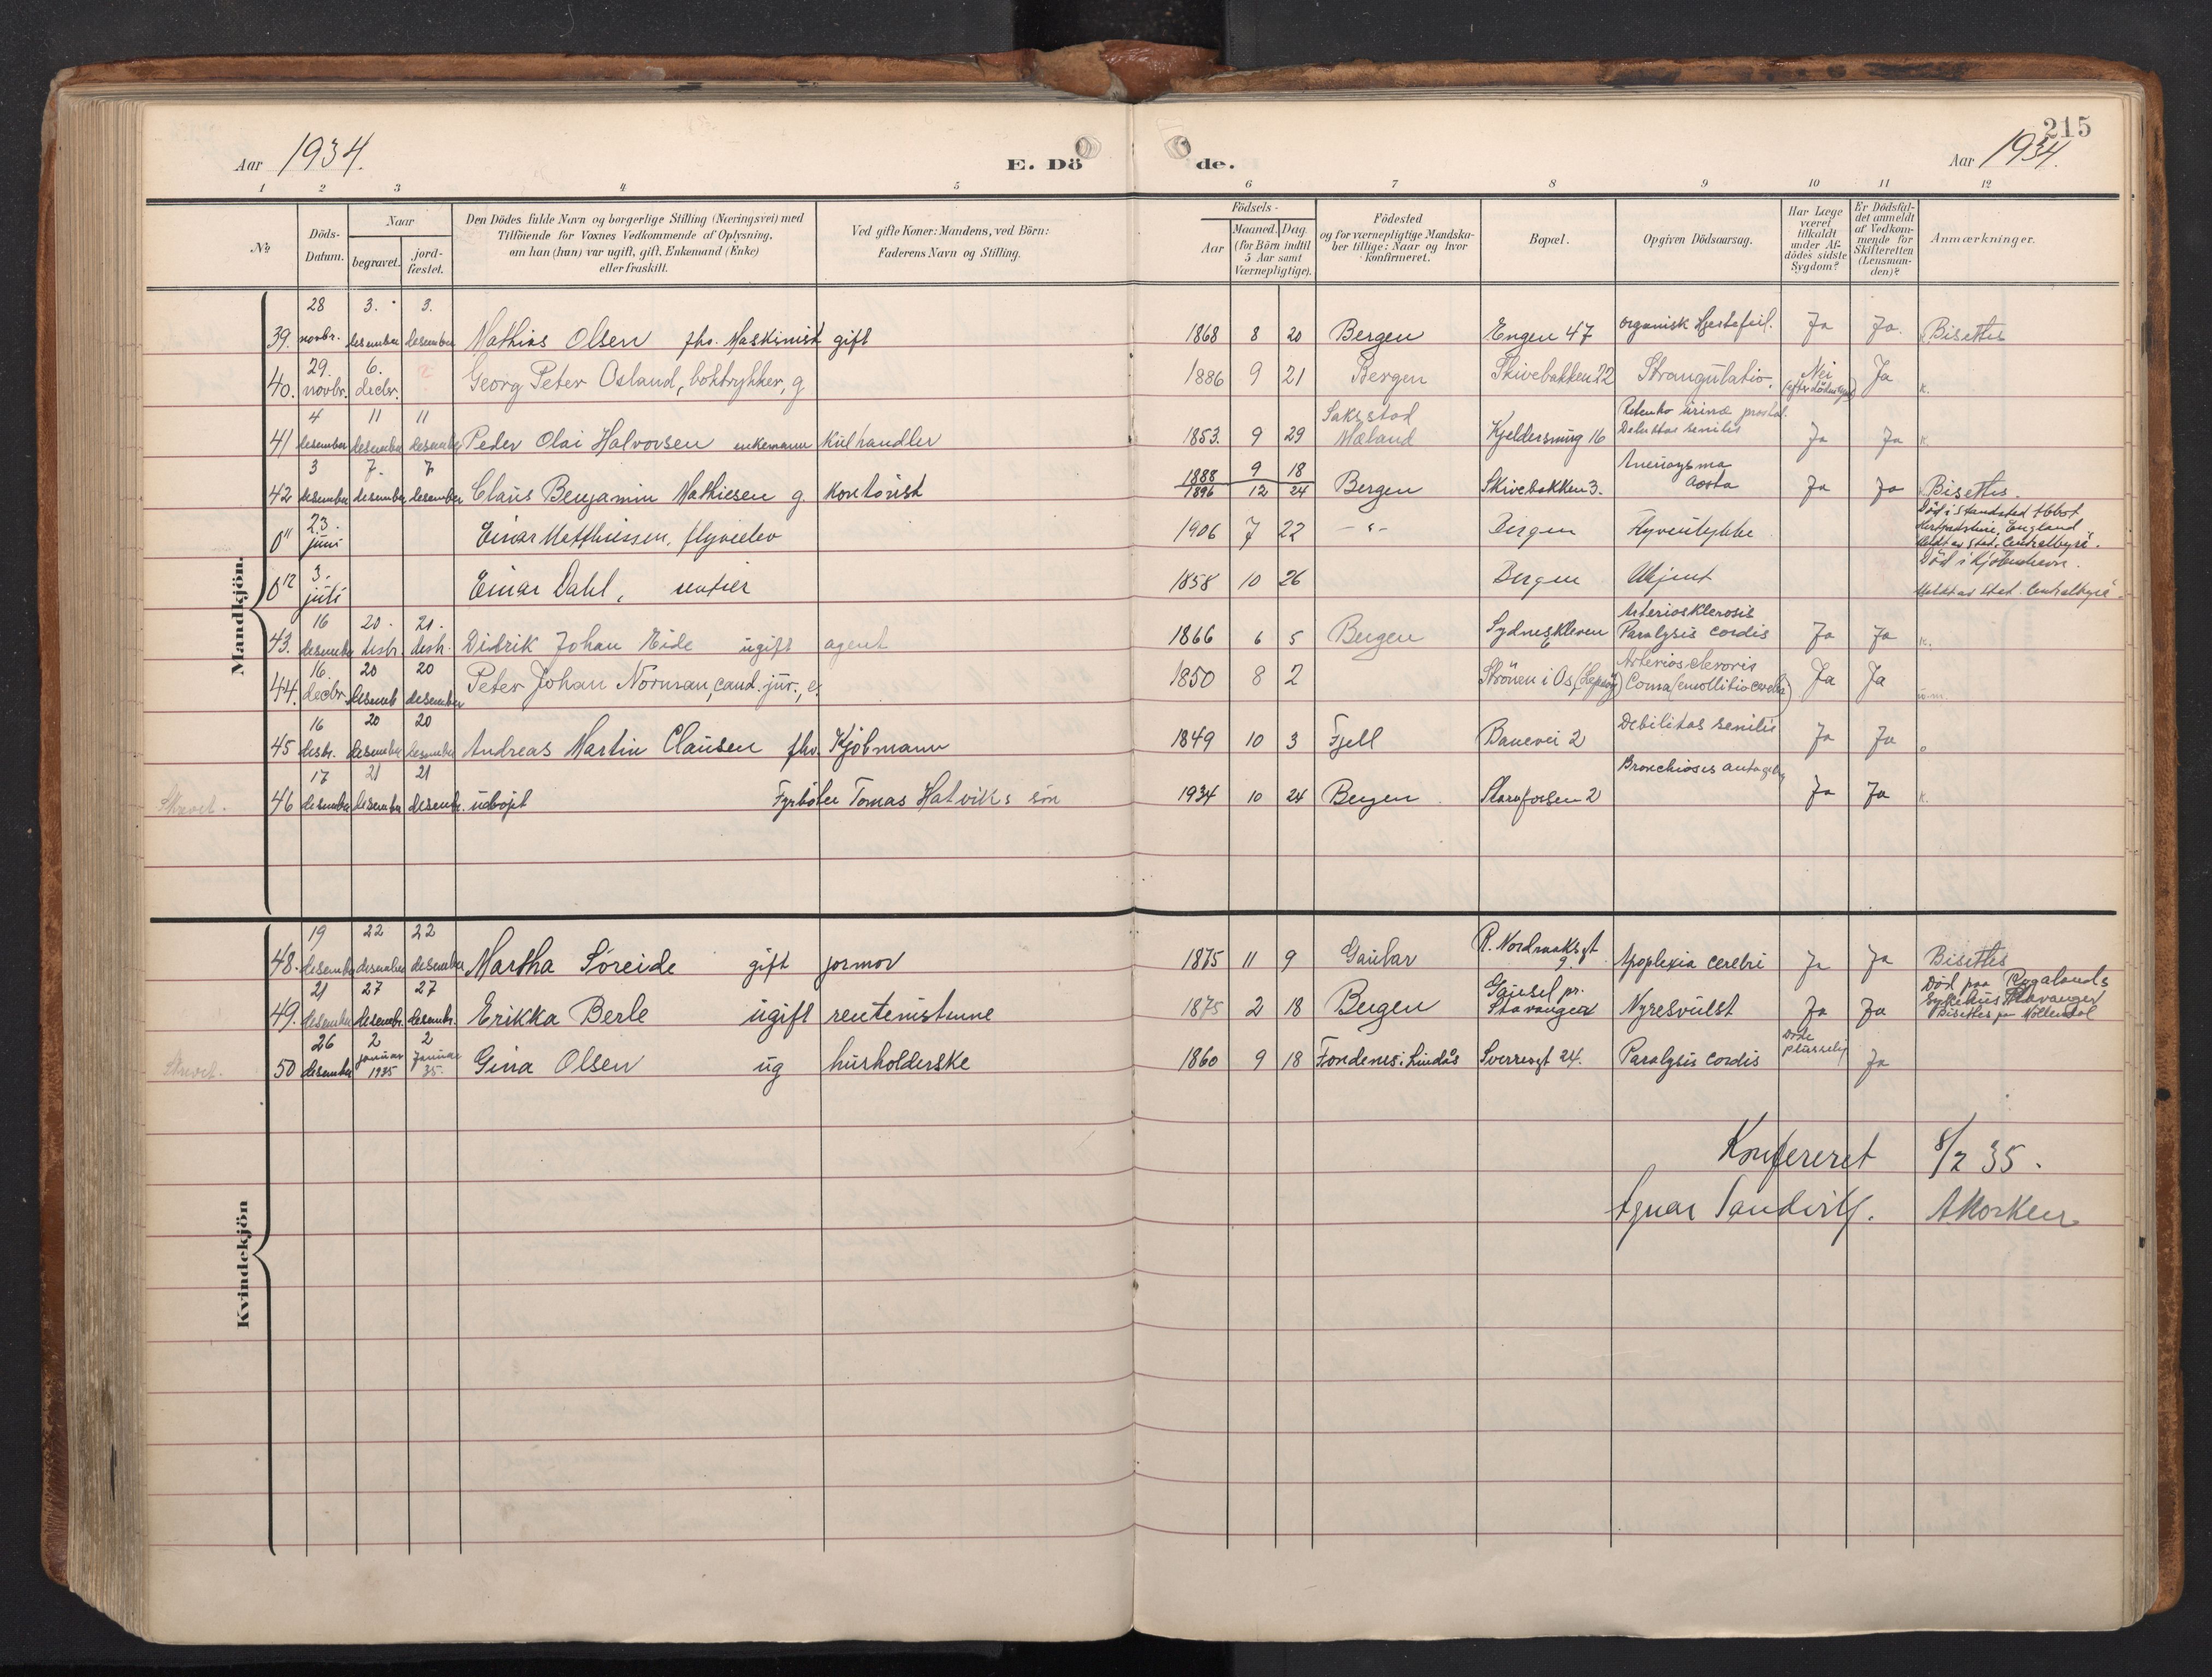 215
Aar 1934. E. Döde. Aar 1934.
1 2 3 4 5 6 7 8 9 10 11 12
No
Döds-Datum.
Naar
begravet.
jord-fæstet.
Den Dödes fulde Navn og borgerlige Stilling (Næringsvei) med
Tilföiende for Voxnes Vedkommende af Oplysning,
om han (hun) var ugift, gift, Enkemand (Enke)
eller fraskilt.
Ved gifte Koner: Mandens, ved Börn:
Faderens Navn og Stilling.
Födsels-
Aar
Maaned. Dag.
(for Börn indtil
5 Aar samt
Værnepligtige).
Födested
og for værnepligtige Mandska-
ber tillige: Naar og hvor
konfirmeret.
Bopæl.
Opgiven Dödsaarsag.
Har Læge
været
tilkaldt
under Af-
dödes sidste
Sygdom?
Er Dödsfal-
det anmeldt
af Vedkom-
mende for
Skifteretten
(Lensman-
den)?
Anmærkninger.
Mandkjön.
39. 28 novbr. 3. desember 3. desember Mathias Olsen fhv. Maskinist gift 1868 8 20 Bergen Engen 47 organisk Hjertefeil. Ja Ja. Bisettes
40. 29. novbr. 6. decbr. Georg Peter Osland, boktrykker, g. 1886 9 21 Bergen Skivebakken 22 Strangulatio. Nei (efter döden tilsyn) Ja k.
41 4 desember 11 desember 11 desember Peder Olai Halvorsen enkemann Kulhandler 1853. 9 29 Saksstad Mæland Kjeldersmug 16 Retentio urinæ prostat. Debilitas senilis Ja Ja k.
42 3 desember 7. desember 7. desember Claus Benjamin Mathiesen g. Kontorist 1888 9 18
1896 12 24 Bergen Skivebakken 3. Aneurysma Aorta Ja Ja Bisettes.
0" 23. juni Einar Matthiessen, flyveelev 1906 7 22 -"- Bergen Flyveulykke Död i Standsted Abbot
Hertfordshire, England.
Meldt av Stat. Centralbyrå.
0 12 3. juli Einar Dahl, rentier 1858 10 26 Bergen Ukjent Död i Kjöbenhavn.
Meldt av Stat. Centralbyrå.
43. 16 desember 20. desbr. 20. desbr. Didrik Johan Eide ugift agent 1866 6 5 Bergen Sydneskleven 6 Arteriosklerosis Paralysis cordis Ja Ja k.
44. 16. decbr. 20 desemb 20 desember Peter Johan Norman, cand. jur., e. 1850 8 2 Strönen i Os, (Lepsöy) Arteriosclerosis Coma (emollitio cerebri) Ja Ja
45 16 desbr. 20 desember 20 desember Andreas Martin Clausen fhv. Kjöbmann 1849 10 3 Fjell Banevei 2 Debilitas senilis Ja Ja
Skrevet. 46 17 desember 21 desember 21 desembr. udöpt Fyrböter Tomas Hatviks sön 1934 10 24 Bergen Skarvfossen 2 Bronchiosis antagelig Ja Ja k.
Kvindekjön
48. 19 desember 22 desember 22 desember Martha Söreide gift jormor 1875 11 9 Gaular R. Nordraaksgt 9. Apoplexia cerebri Ja Ja Bisettes
49. 21 desember 27 desembr. 27 desembr. Erikka Berle ugift rentenistinne 1875 2 18 Bergen Gausel pr. Stavanger Nyresvulst Ja Ja Död paa Rogalands
Sykehus Stavanger
Bisettes paa Möllendal
Skrevet. 50 26 desember 2 januar 1935 2 Januar 35. Gina Olsen ug husholderske 1860 9 18 Fondenes i Lindås Sverresgt 24. Paralysis cordis Döde plusselig Ja
Konfereret 8/2 35.
Agnar Sandvik. A Morken